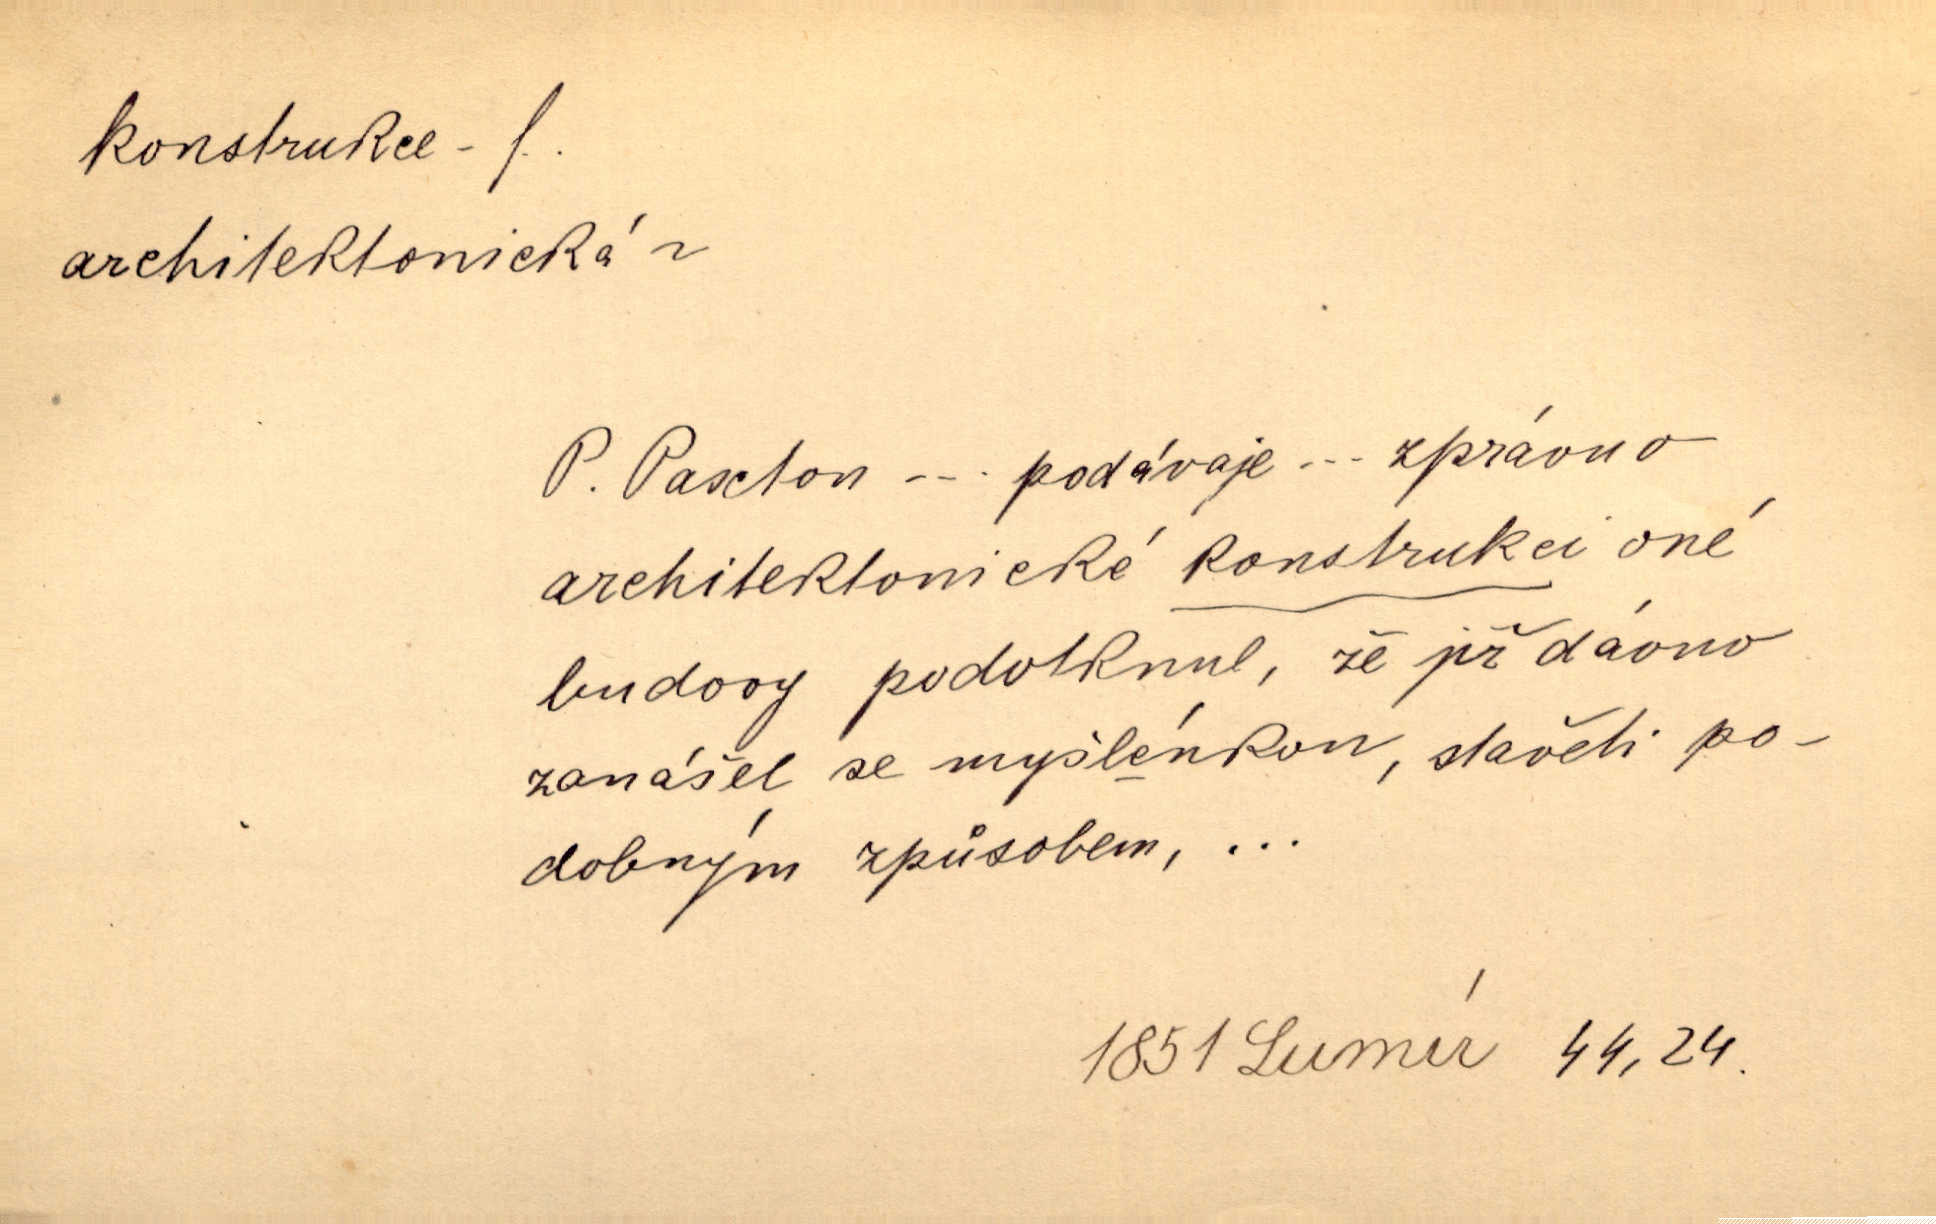 konstrukce - f.
architektonická ~
P. Paxton --- podávaje --- zprávu o
architektonické konstrukci oné
budovy podotknul, že již dávno
zanášel se myšlénkou, stavěti po-
dobným způsobem, ...
1851 Lumír 44, 24.